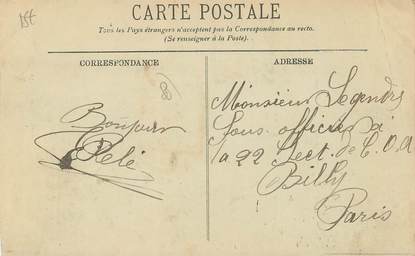 CARTE POSTALE
Tous les Pays étrangers n'acceptent pas la Correspondance au recto.
(Se renseigner à la Poste).
CORRESPONDANCE
ADRESSE
Bonjour
Monsieur Legendre
Sous officier à
la 22 Sect. de C.O.A
Billy
Paris